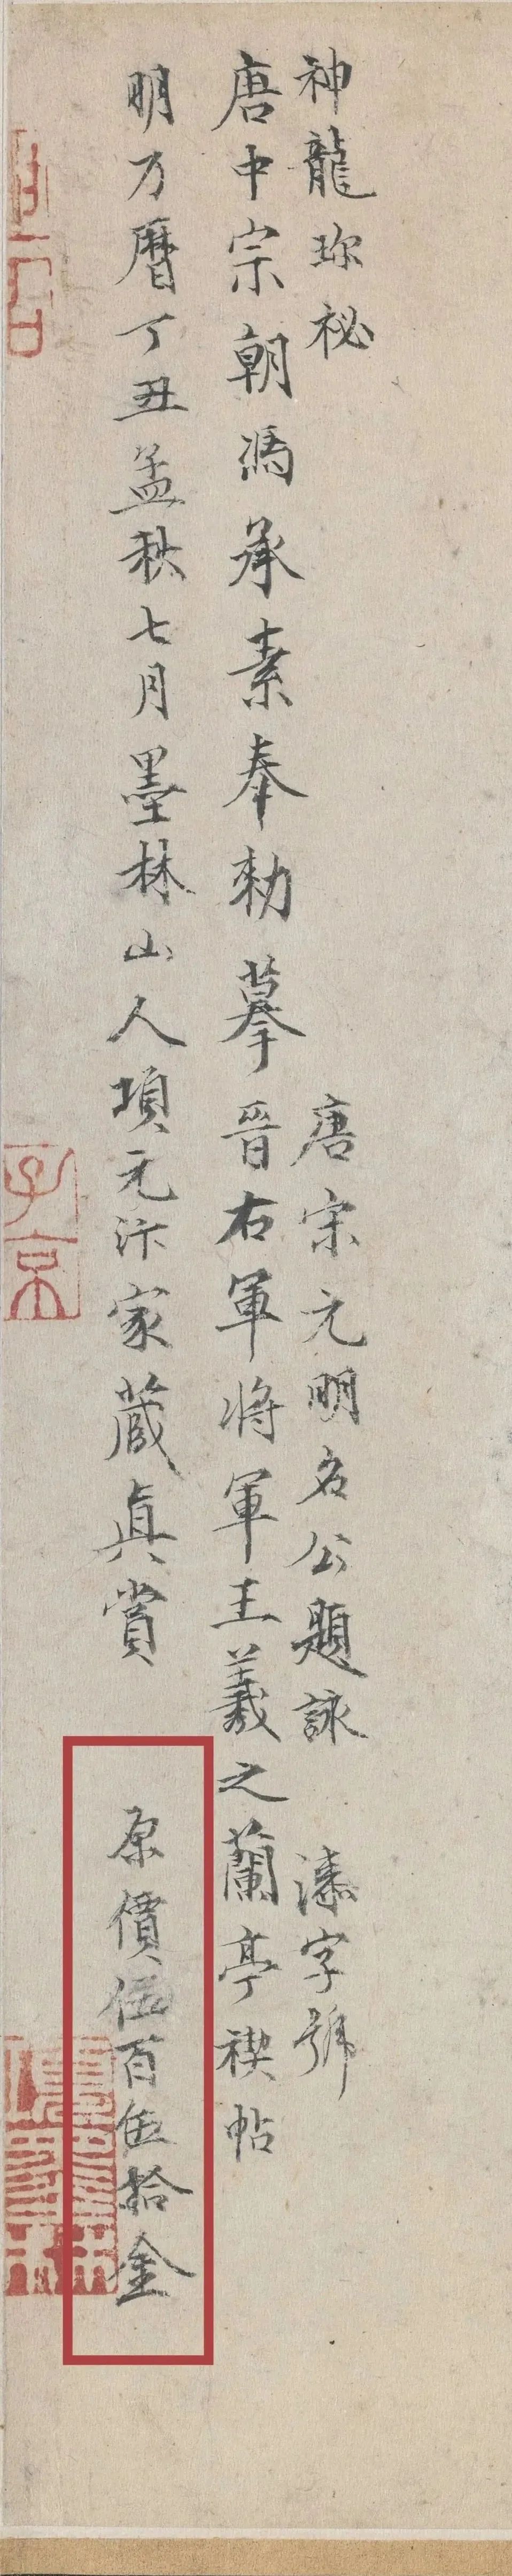 神龍珎祕 唐宋元明名公題詠 漆字號
唐中宗朝馮承素奉勑摹晉右軍將軍王羲之蘭亭禊帖
明万曆丁丑孟秋七月墨林山人項元汴家藏真賞 原價伍百伍拾金
子京